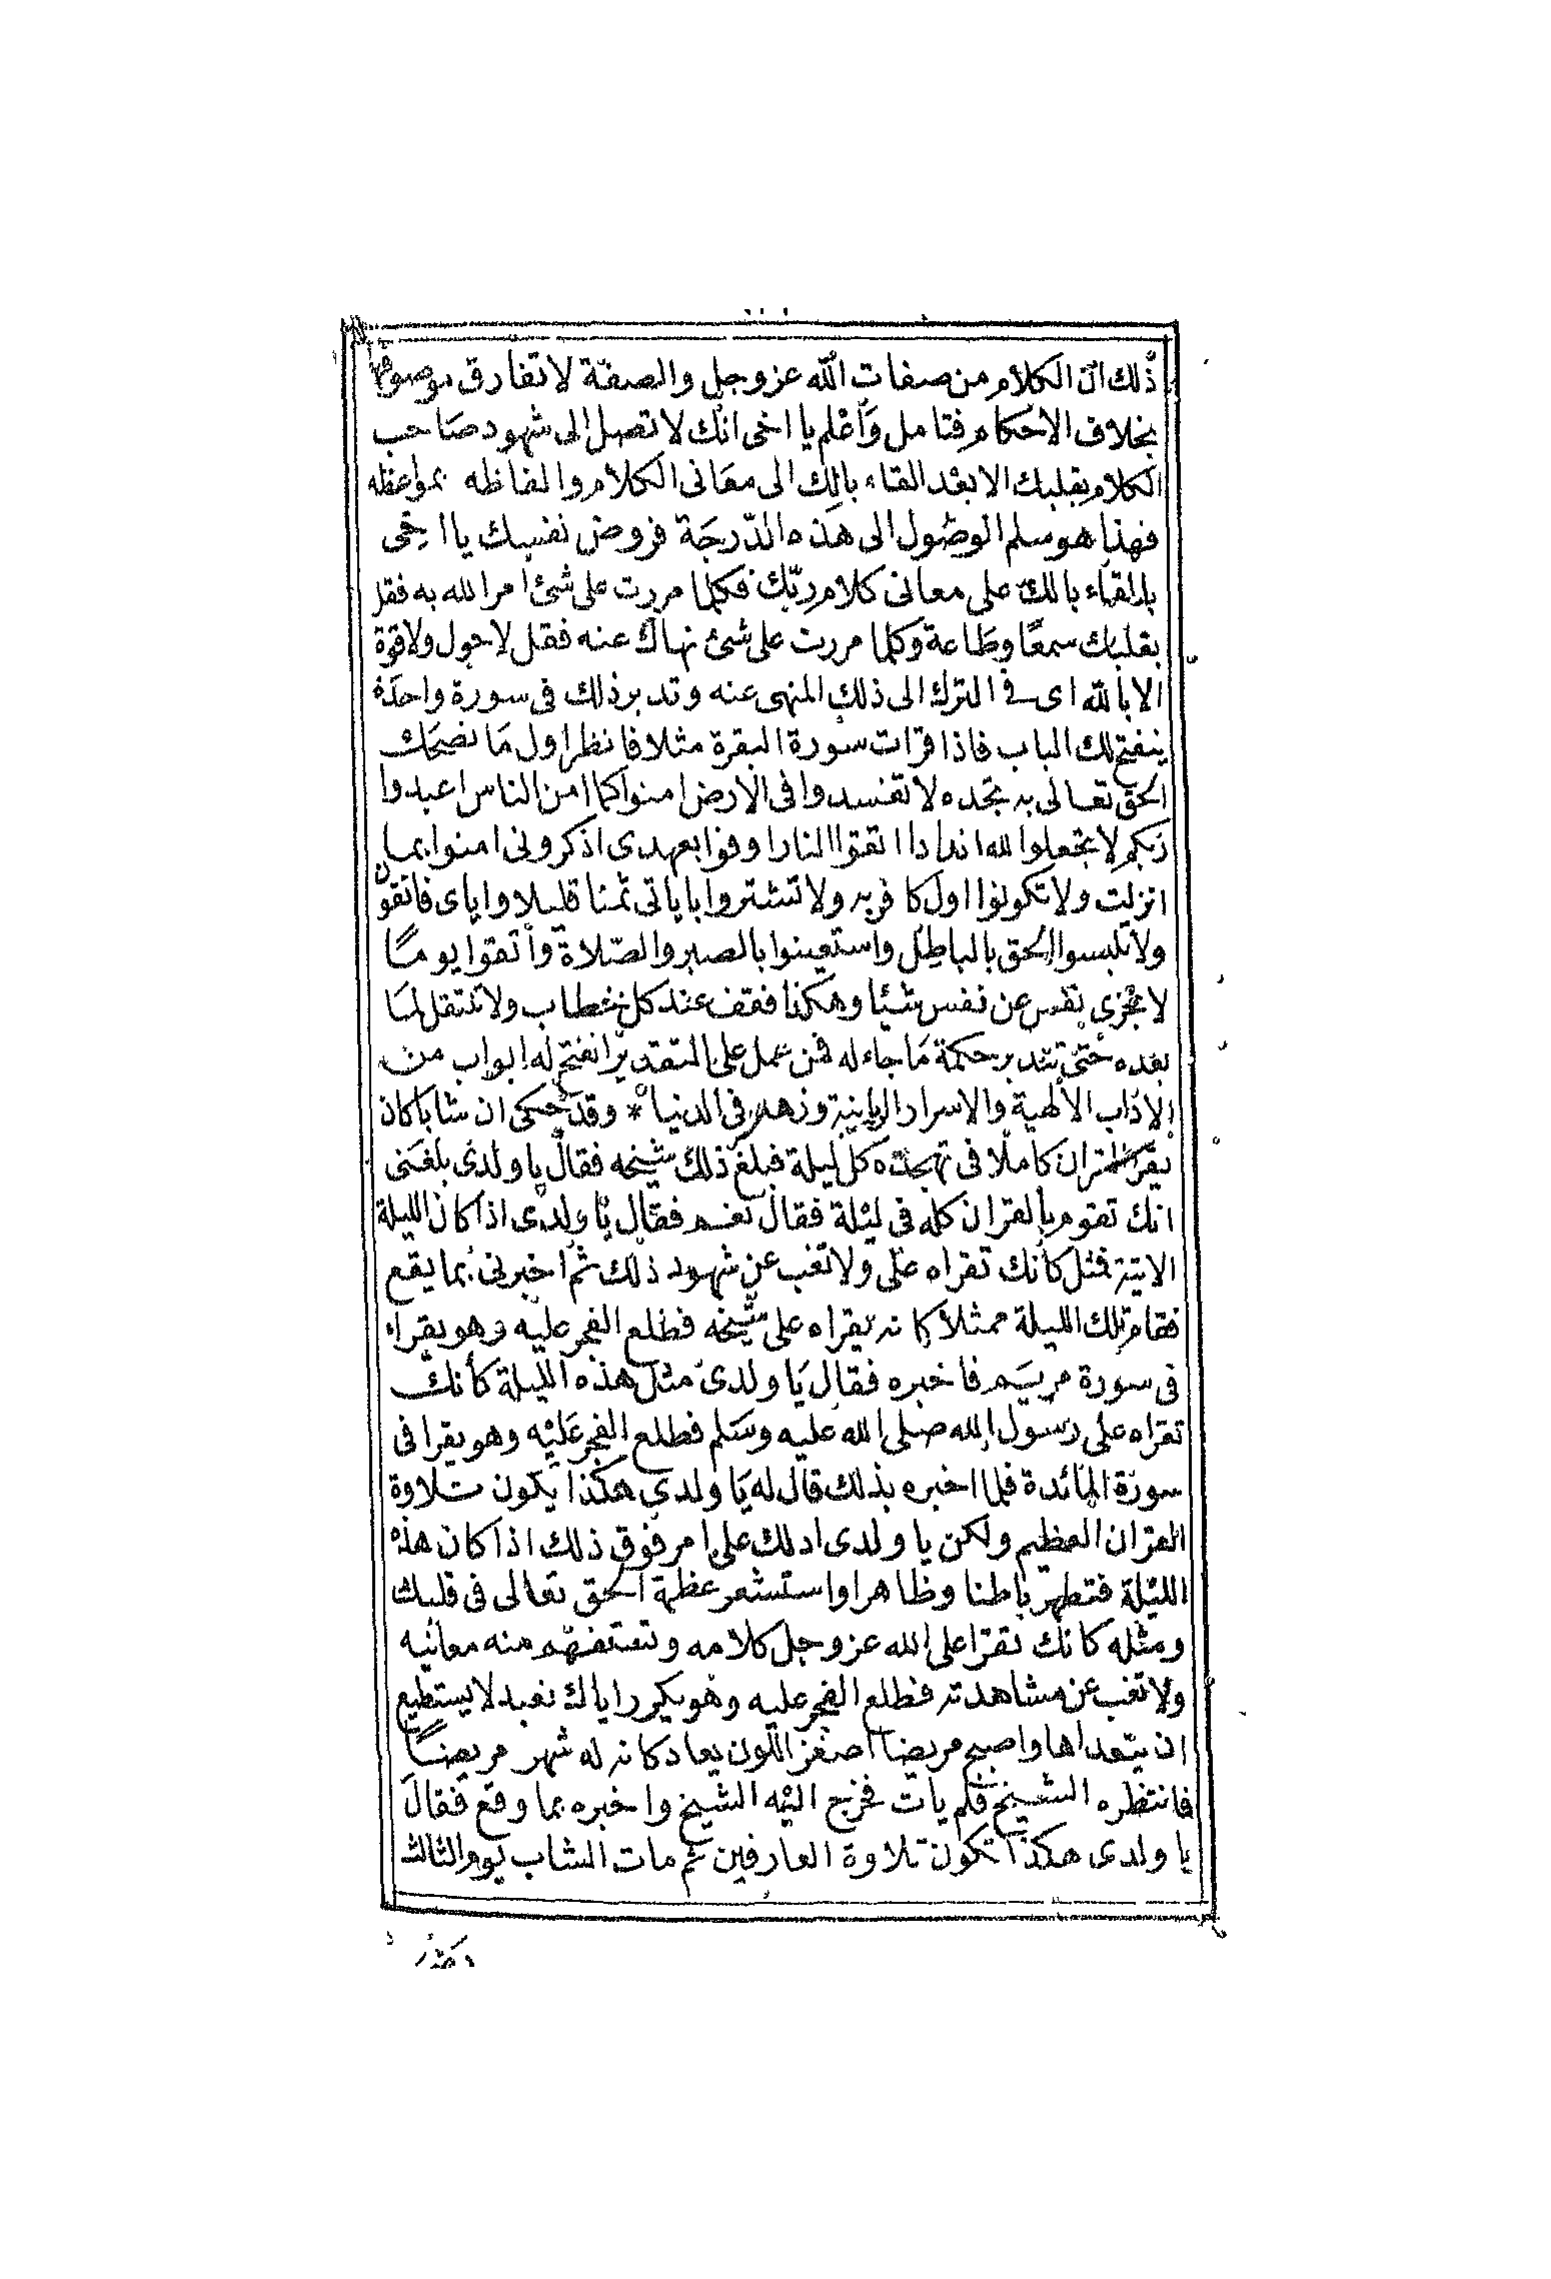 ذلك ان الكلام من صفات الله عز وجل والصفة لا تفارق موصوفها
بخلاف الاحكام فتامل وَاعْلم يا اخى انك لا تصل الى شهود صَاحب
الكلام بقلبك الا بعْد القاء بالك الى معَانى الكلام والفاظه بمواعظه
فهذا هو سلم الوصُول الى هَذه الدّرجَة فروض نفسك يا اخِى
بالقاء بالك على معانى كلام ربّك فكلما مررت على شئ امر الله به فقل
بقلبك سمعًا وطَاعة وكلما مررت على شئ نهاك عنه فقل لا حول ولا قوة
الا بالله اى فى الترك الى ذلك المنهى عنه وتدبر ذلك فى سورة واحدَة
ينفتح لك الباب فاذا قرات سُورة البقرة مثلا فانظر اول مَا نصحَك
الحق تعالى به تجده لا تفسدوا فى الارض امنوا كما امن الناس اعبدوا
ربكم لا تجعلوا لله اندادا اتقوا النار اوفوا بعهدى اذكرونى امنوا بما
انزلت ولا تكونوا اول كافر به ولا تشتروا باياتى ثمنا قليلا واياى فاتقون
ولا تلبسوا الحق بالباطِل واستعينوا بالصبر والصّلاة واتقوا يومًا
لا تجزى نفس عن نفس شيئا وهكذا فقف عند كل خطاب ولا تنتقل لما
بعده حتى تتدبر حكمة مَا جاء له فمن عمل على التقدير انفتح له ابواب من
الاداب الالهية والاسرار الربانية وزهد فى الدنيا * وقد حكى ان شابا كان
يقرا القران كاملا فى تهجده كل ليلة فبلغ ذلك شيخه فقال يا ولدى بلغَنى
انك تقوم بالقران كله فى ليْلة فقال نعم فقال يا ولدى اذا كان الليلة
الاتية فمثل كأنك تقراه علىّ ولا تغب عن شهود ذلك ثم اخبرنى بما يقع
فقام تلك الليلة ممثلا كانه يقراه على شيخه فطلع الفجر عليه وهو يقراء
فى سورة مريَم فاخبره فقال يَا ولدى مثل هذه الليلة كأنك
تقراه على رسول الله صلى الله عليه وسَلم فطلع الفجر عَليْه وهو يقرا فى
سورة المائدة فلما اخبره بذلك قال له يَا ولدى هكذا يكون تلاوة
القران العظيم ولكن يا ولدى ادلك على امر فوق ذلك اذا كان هذه
الليْلة فتطهر باطنا وظاهرا واستشعر عظمة الحق تعالى فى قلبك
ومثله كانك تقرا على الله عز وجل كلامه وتستفهم منه معانيه
ولا تغب عن مشاهدته فطلع الفجر عليه وهو يكرر اياك نعبد لا يستطيع
ان يتعداها واصبح مريضا اصفر اللون يعاد كانه له شهر مريضًا
فانتظره الشيخ فلم يات فخرج اليْه الشيخ واخبره بما وقع فقال
يا ولدى هكذا تكون تلاوة العارفين ثم مات الشاب يوم الثالث